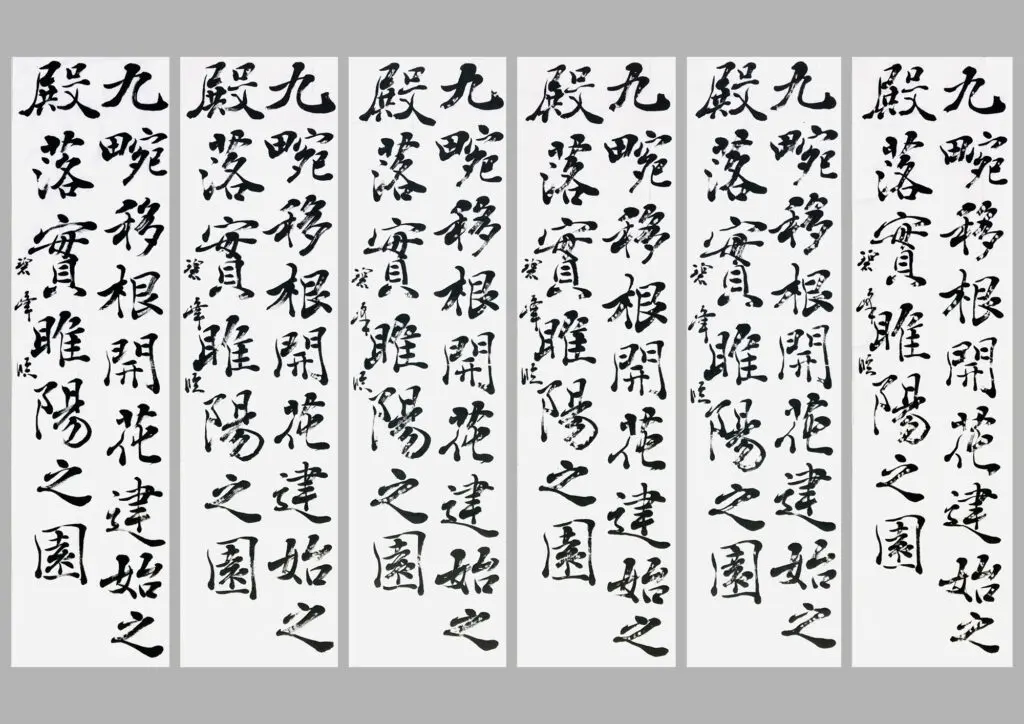 九畹移根開花建始之
殿落實睢陽之園
峰臨
九畹移根開花建始之
殿落實睢陽之園
峰臨
九畹移根開花建始之
殿落實睢陽之園
峰臨
九畹移根開花建始之
殿落實睢陽之園
峰臨
九畹移根開花建始之
殿落實睢陽之園
峰臨
九畹移根開花建始之
殿落實睢陽之園
峰臨